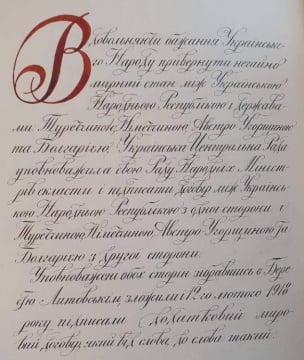 Вдовольняючи бажання Українсько-
го Народу привернути негайно
мирний стан між Українською
Народньою Республікою і Держава-
ми Туреччиною, Німеччиною, Австро-Угорщиною
та Болгарією, Українська Центральна Рада
уповноважила свою Раду Народних Мініст-
рів скласти і підписати договір між Українсь-
кою Народньою Республікою з одної сторони і
Туреччиною, Німеччиною, Австро-Угорщиною та
Болгарією з другої сторони.
Уповноважені обох сторін зібравшись в Берес-
тю Литовськім, зложили і 12го лютого 1918
року підписали додатковий миро-
вий договір, який від слова до слова такий: